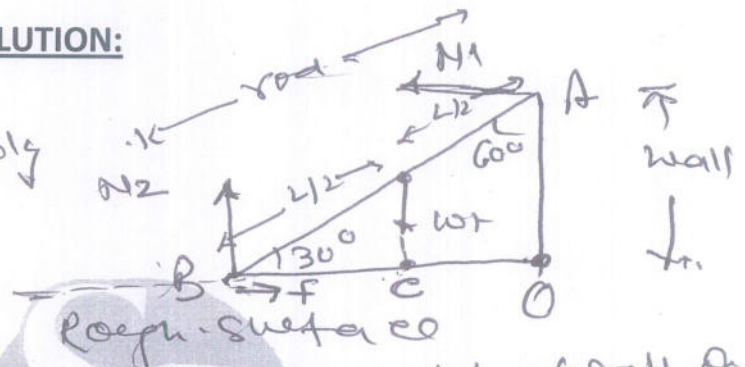 LUTION:
rod
N1
A
L/2
60°
wall
N2
L/2
wt
30°
B
f
C
O
Rough surface